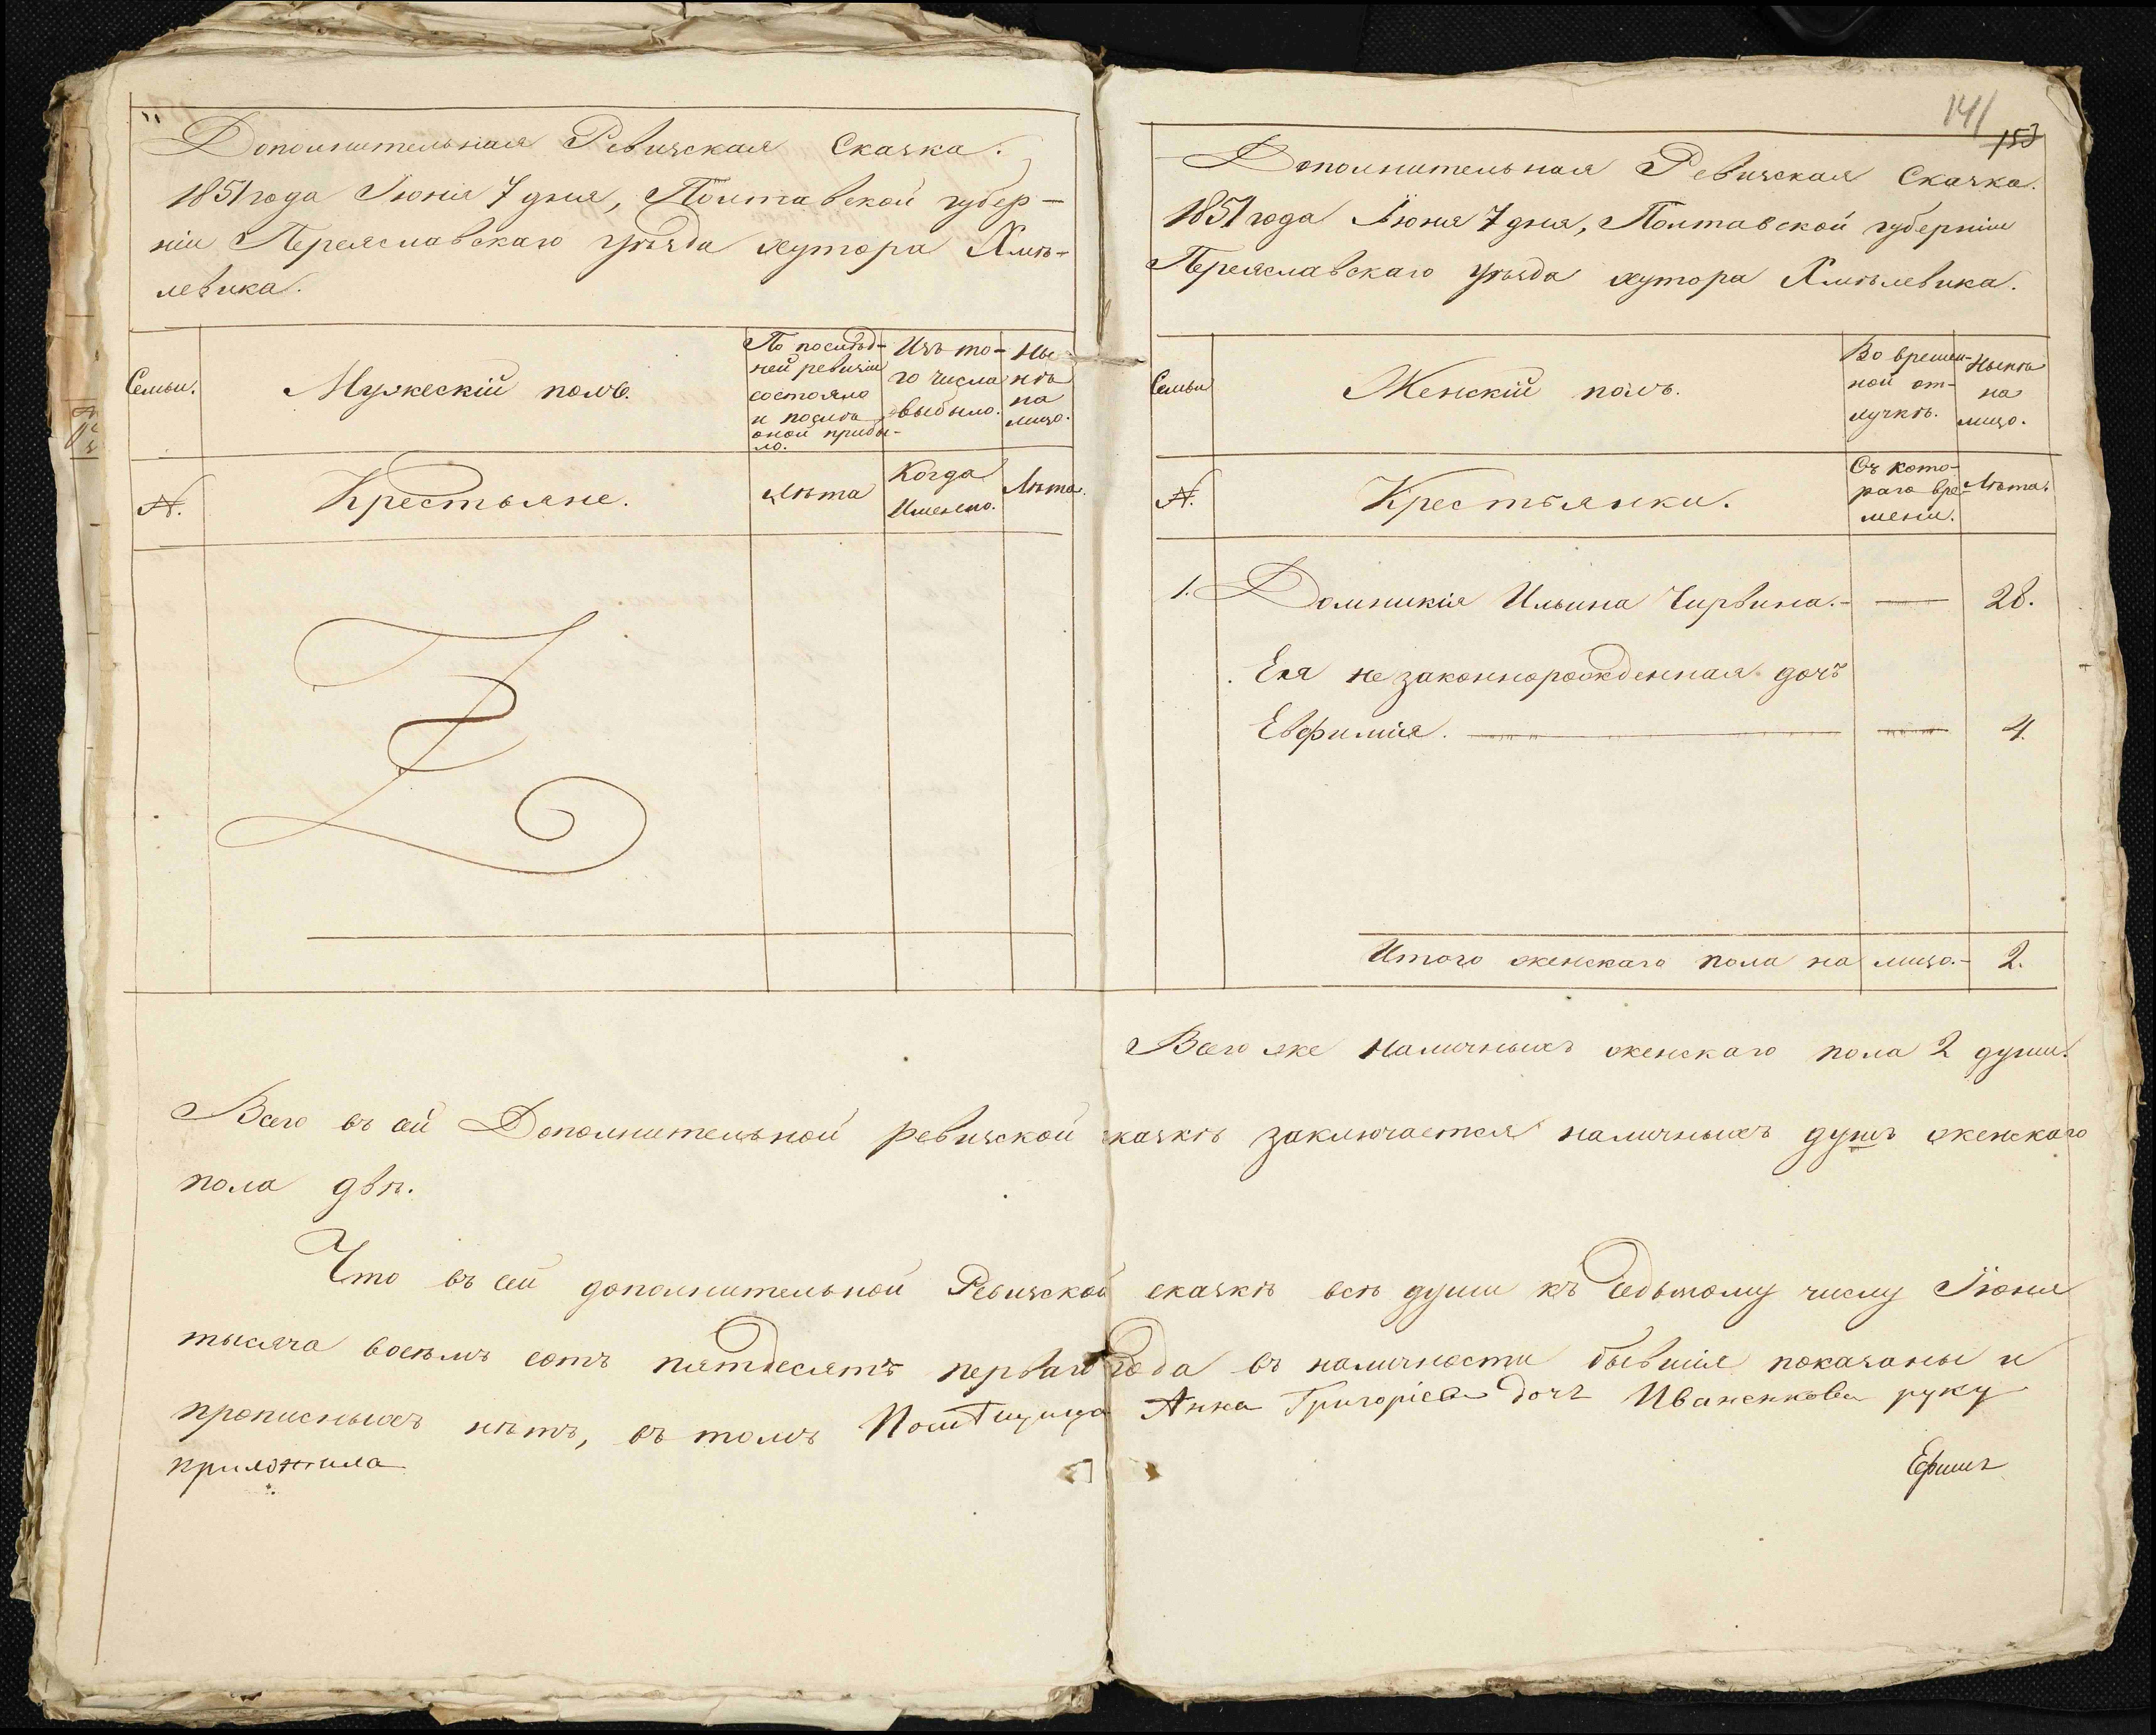 Дополнительная Ревизская Сказка.
1851 года Июня 7 дня, Полтавской губер-
ніи Переяславскаго уѣзда хутора Хмѣ-
левика.
Семьи.
Мужескій полъ.
По послѣд-
ней ревизіи
состояло
и послѣ
оной прибы-
ло.
Изъ то-
го числа
выбыло.
Ны-
нѣ
на
лицо.
№.
Крестьяне.
Лѣта
Когда
Именно.
Лѣта.
141
153
Дополнительная Ревизская Сказка.
1851 года Июня 7 дня, Полтавской губерніи
Переяславскаго уѣзда хутора Хмѣлевика.
Семьи
Женскій полъ.
Во времен-
ной от-
лучкѣ.
Нынѣ
на
лицо.
№.
Крестьянки.
Съ кото-
раго вре-
мени.
Лѣта.
1. Домникія Ильина Чирвина. 28.
Ея незаконнорожденная дочь
Евфимія. 4.
Итого женскаго пола на лицо. 2.
Всего же наличныхъ женскаго пола 2 души.
Всего въ сей Дополнительной ревизской сказкѣ заключается наличныхъ душъ женскаго
пола двѣ.
Что въ сей дополнительной Ревизской сказкѣ всѣ души къ седьмому числу Іюня
тысяча восемь сотъ пятдесятъ перваго года въ наличности бывшіе показаны и
прописныхъ нѣтъ, въ томъ Помѣщица Анна Григоріева дочь Иваненкова руку
приложила